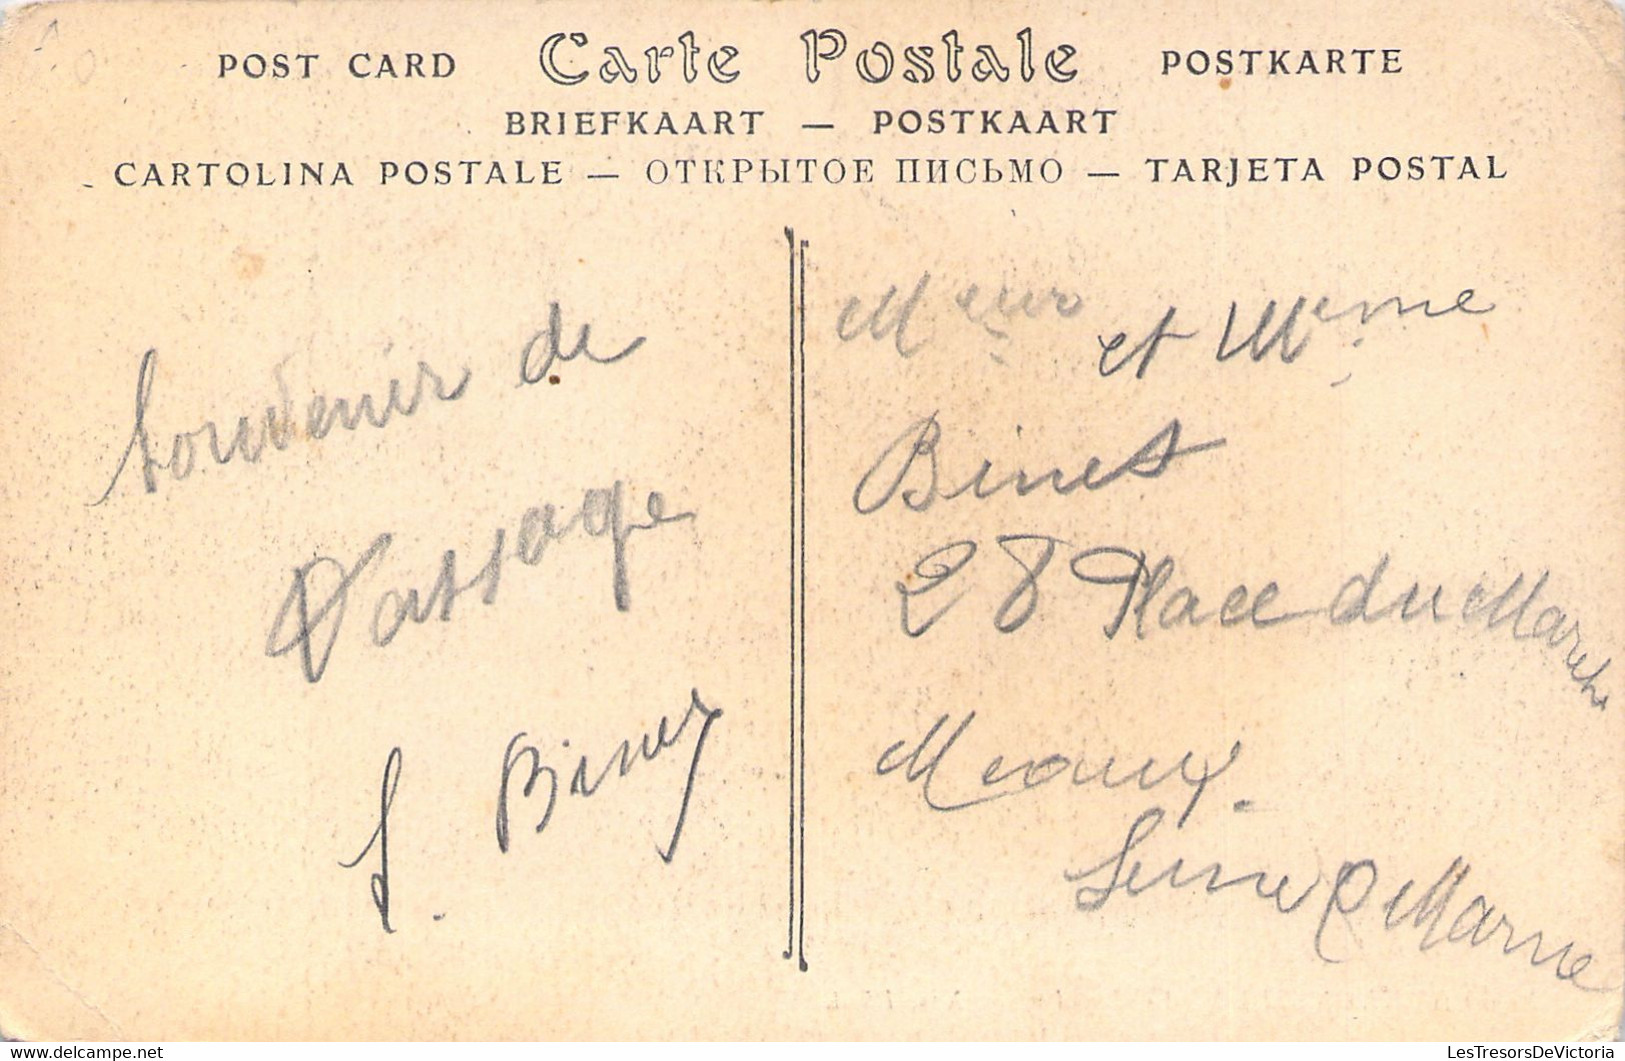 POST CARD Carte Postale POSTKARTE
BRIEFKAART — POSTKAART
CARTOLINA POSTALE — ОТКРЫТОЕ ПИСЬМО — TARJETA POSTAL
Souvenir de
Passage
Meur et Meme
Binet
28 Place du Marche
Meaux.
Seine & Marne
LesTresorsDeVictoria